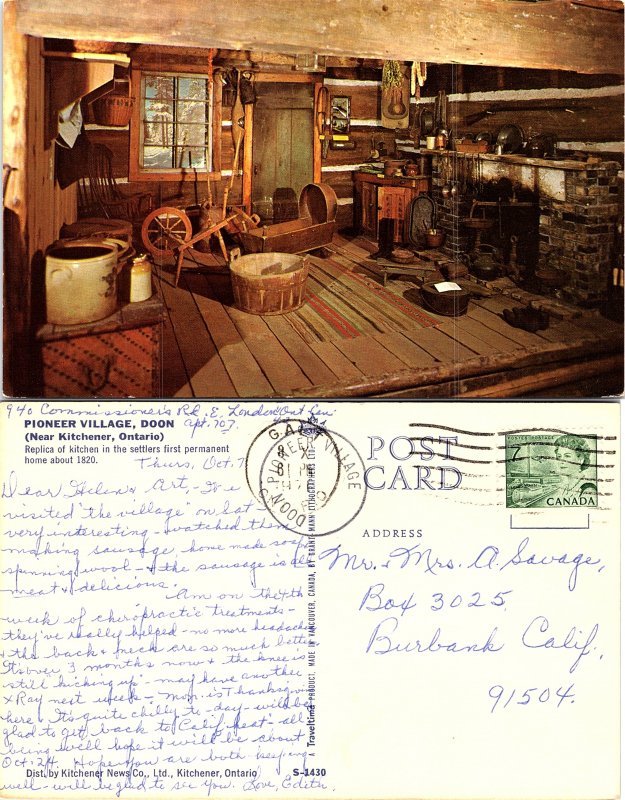 940 Commissioners Rd. E. London Ont Can
Apt. 707.
PIONEER VILLAGE, DOON
(Near Kitchener, Ontario)
Replica of kitchen in the settlers first permanent
home about 1820.
Thurs, Oct. 7
Dear Helen & Art, - We
visited "the village" on Sat -
very interesting - watched them
making sausage, home made soap,
spinning wool - & the sausage is all
meat & delicious.
Am on the 4th
week of chiropractic treatments -
they've really helped - no more headaches
& the back & neck are so much better
Its over 3 months now & the knee is
still kicking up - may have another
X Ray next week - Mon. is Thanksgiving
here. Its quite chilly to-day - will be
glad to get back to Calif. heat - all
being well hope it will be about
Oct. 24. Hope you are both keeping
well - will be glad to see you. Love, Edith.
Dist. by Kitchener News Co., Ltd., Kitchener, Ontario
S-1430
A Traveltime PRODUCT. MADE IN VANCOUVER, CANADA, BY GRANT-MANN LITHOGRAPHERS LTD.
DOON PIONEER VILLAGE
POST
CARD
POSTES POSTAGE
7
CANADA
ADDRESS
Mr. & Mrs. A. Savage,
Box 3025,
Burbank Calif.
91504.